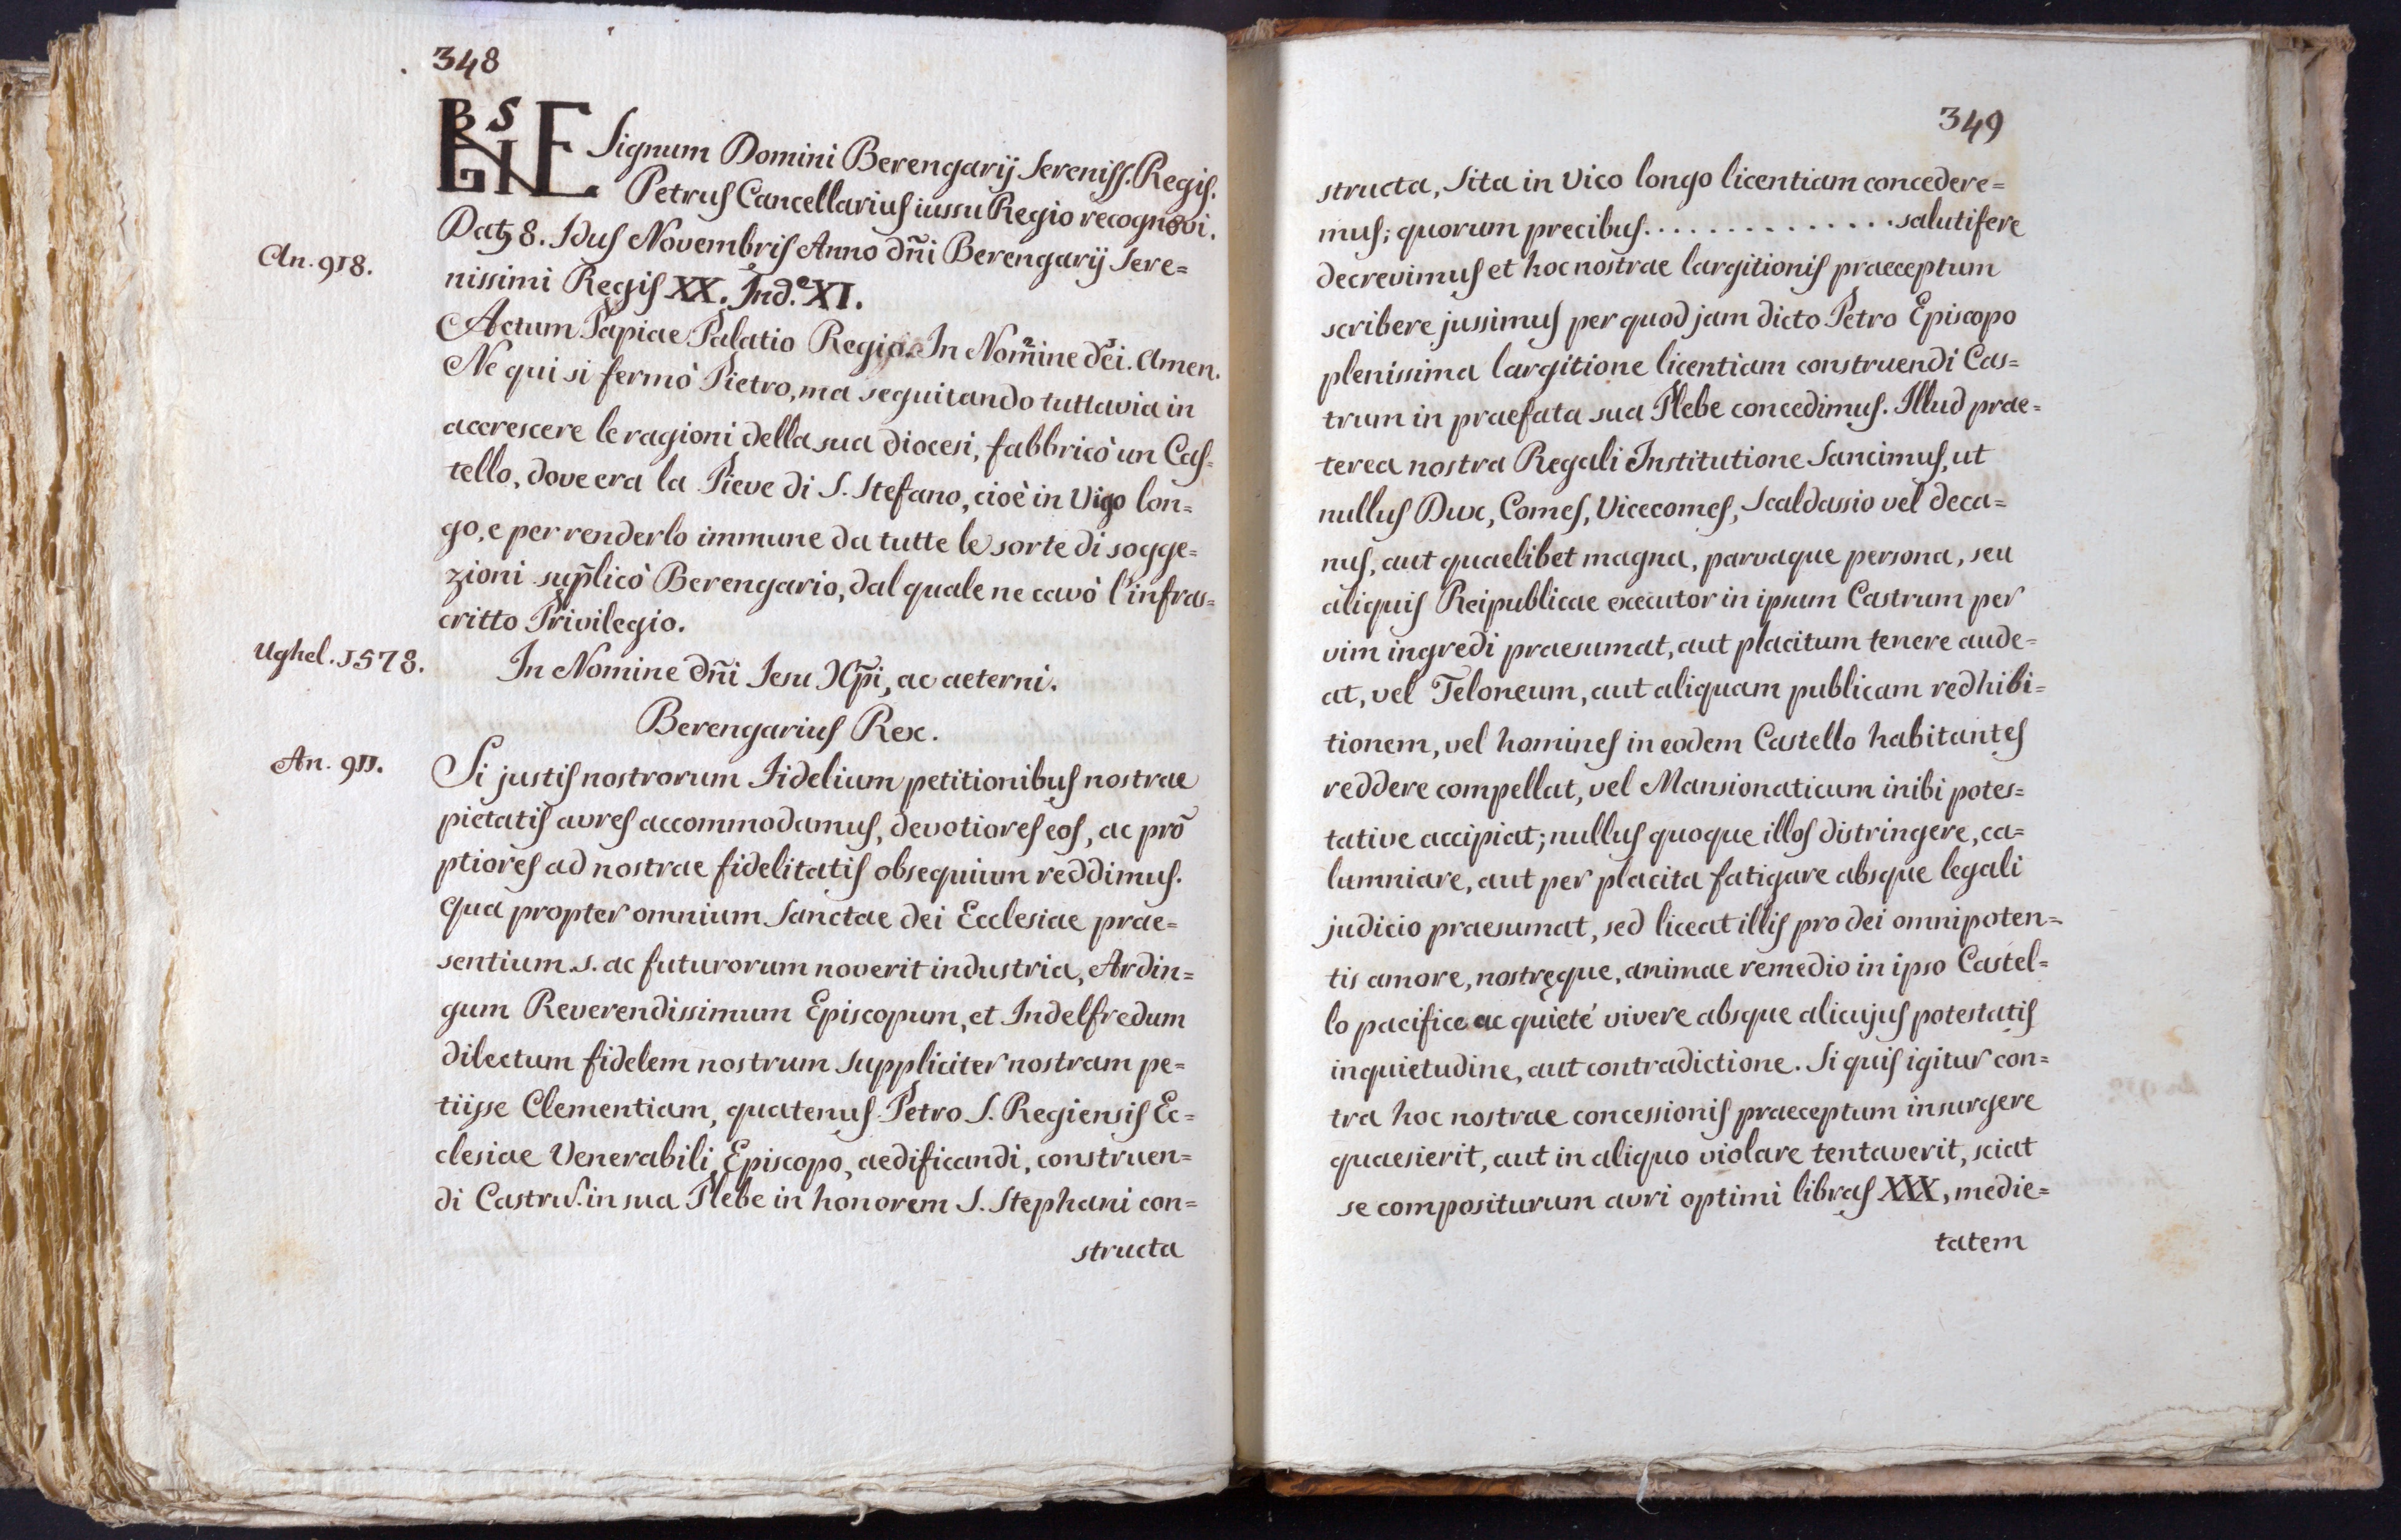 348
Signum Domini Berengarij Sereniss. Regis.
Petrus Cancellarius iussu Regio recognovi.
Datz 8. Idus Novembris Anno dñi Berengarij Sere=
An. 918.
nissimi Regis XX. Ind.e XI.
Actum Papiae Palatio Regio. In Nomine dei. Amen.
Ne qui si fermò Pietro, ma seguitando tuttavia in
accrescere le ragioni della sua diocesi, fabbricò un Cas=
tello, dove era la Pieve di S. Stefano, cioè in Vigo lon=
go, e per renderlo immune da tutte le sorte di sogge=
zioni sup̃licò Berengario, dal quale ne cavò l'infras=
critto Privilegio.
Ughel. 1578.
In Nomine dñi Iesu Xp̃i, ac aeterni.
Berengarius Rex.
An. 911.
Si justis nostrorum Fidelium petitionibus nostrae
pietatis avres accommodamus, devotiores eos, ac prõ
ptiores ad nostrae fidelitatis obsequium reddimus.
Qua propter omnium Sanctae dei Ecclesiae prae=
sentium .s. ac futurorum noverit industria, Ardin=
gum Reverendissimum Episcopum, et Indelfredum
dilectum fidelem nostrum suppliciter nostram pe=
tiisse Clementiam, quatenus Petro S. Regiensis Ec=
clesiae Venerabili Episcopo, aedificandi, construen=
di Castrũ. in sua Plebe in honorem S. Stephani con=
structa
349
structa, sita in Vico longo licentiam concedere=
mus; quorum precibus. . . . . . . . . . . . . . . salutifere
decrevimus et hoc nostrae largitionis praeceptum
scribere jussimus per quod jam dicto Petro Episcopo
plenissima largitione licentiam construendi Cas=
trum in praefata sua Plebe concedimus. Illud prae=
terea nostra Regali Institutione Sancimus, ut
nullus Dux, Comes, Vicecomes, Scaldassio vel deca=
nus, aut quaelibet magna, parvaque persona, seu
aliquis Reipublicae executor in ipsum Castrum per
vim ingredi praesumat, aut placitum tenere aude=
at, vel Teloneum, aut aliquam publicam redhibi=
tionem, vel homines in eodem Castello habitantes
reddere compellat, vel Mansionaticum inibi potes=
tative accipiat; nullus quoque illos distringere, ca=
lumniare, aut per placita fatigare absque legali
judicio praesumat, sed liceat illis pro dei omnipoten=
tis amore, nostręque, animae remedio in ipso Castel=
lo pacifice ac quieté vivere absque alicujus potestatis
inquietudine, aut contradictione. Si quis igitur con=
tra hoc nostrae concessionis praeceptum insurgere
quaesierit, aut in aliquo violare tentaverit, sciat
se compositurum avri optimi libras XXX, medie=
tatem